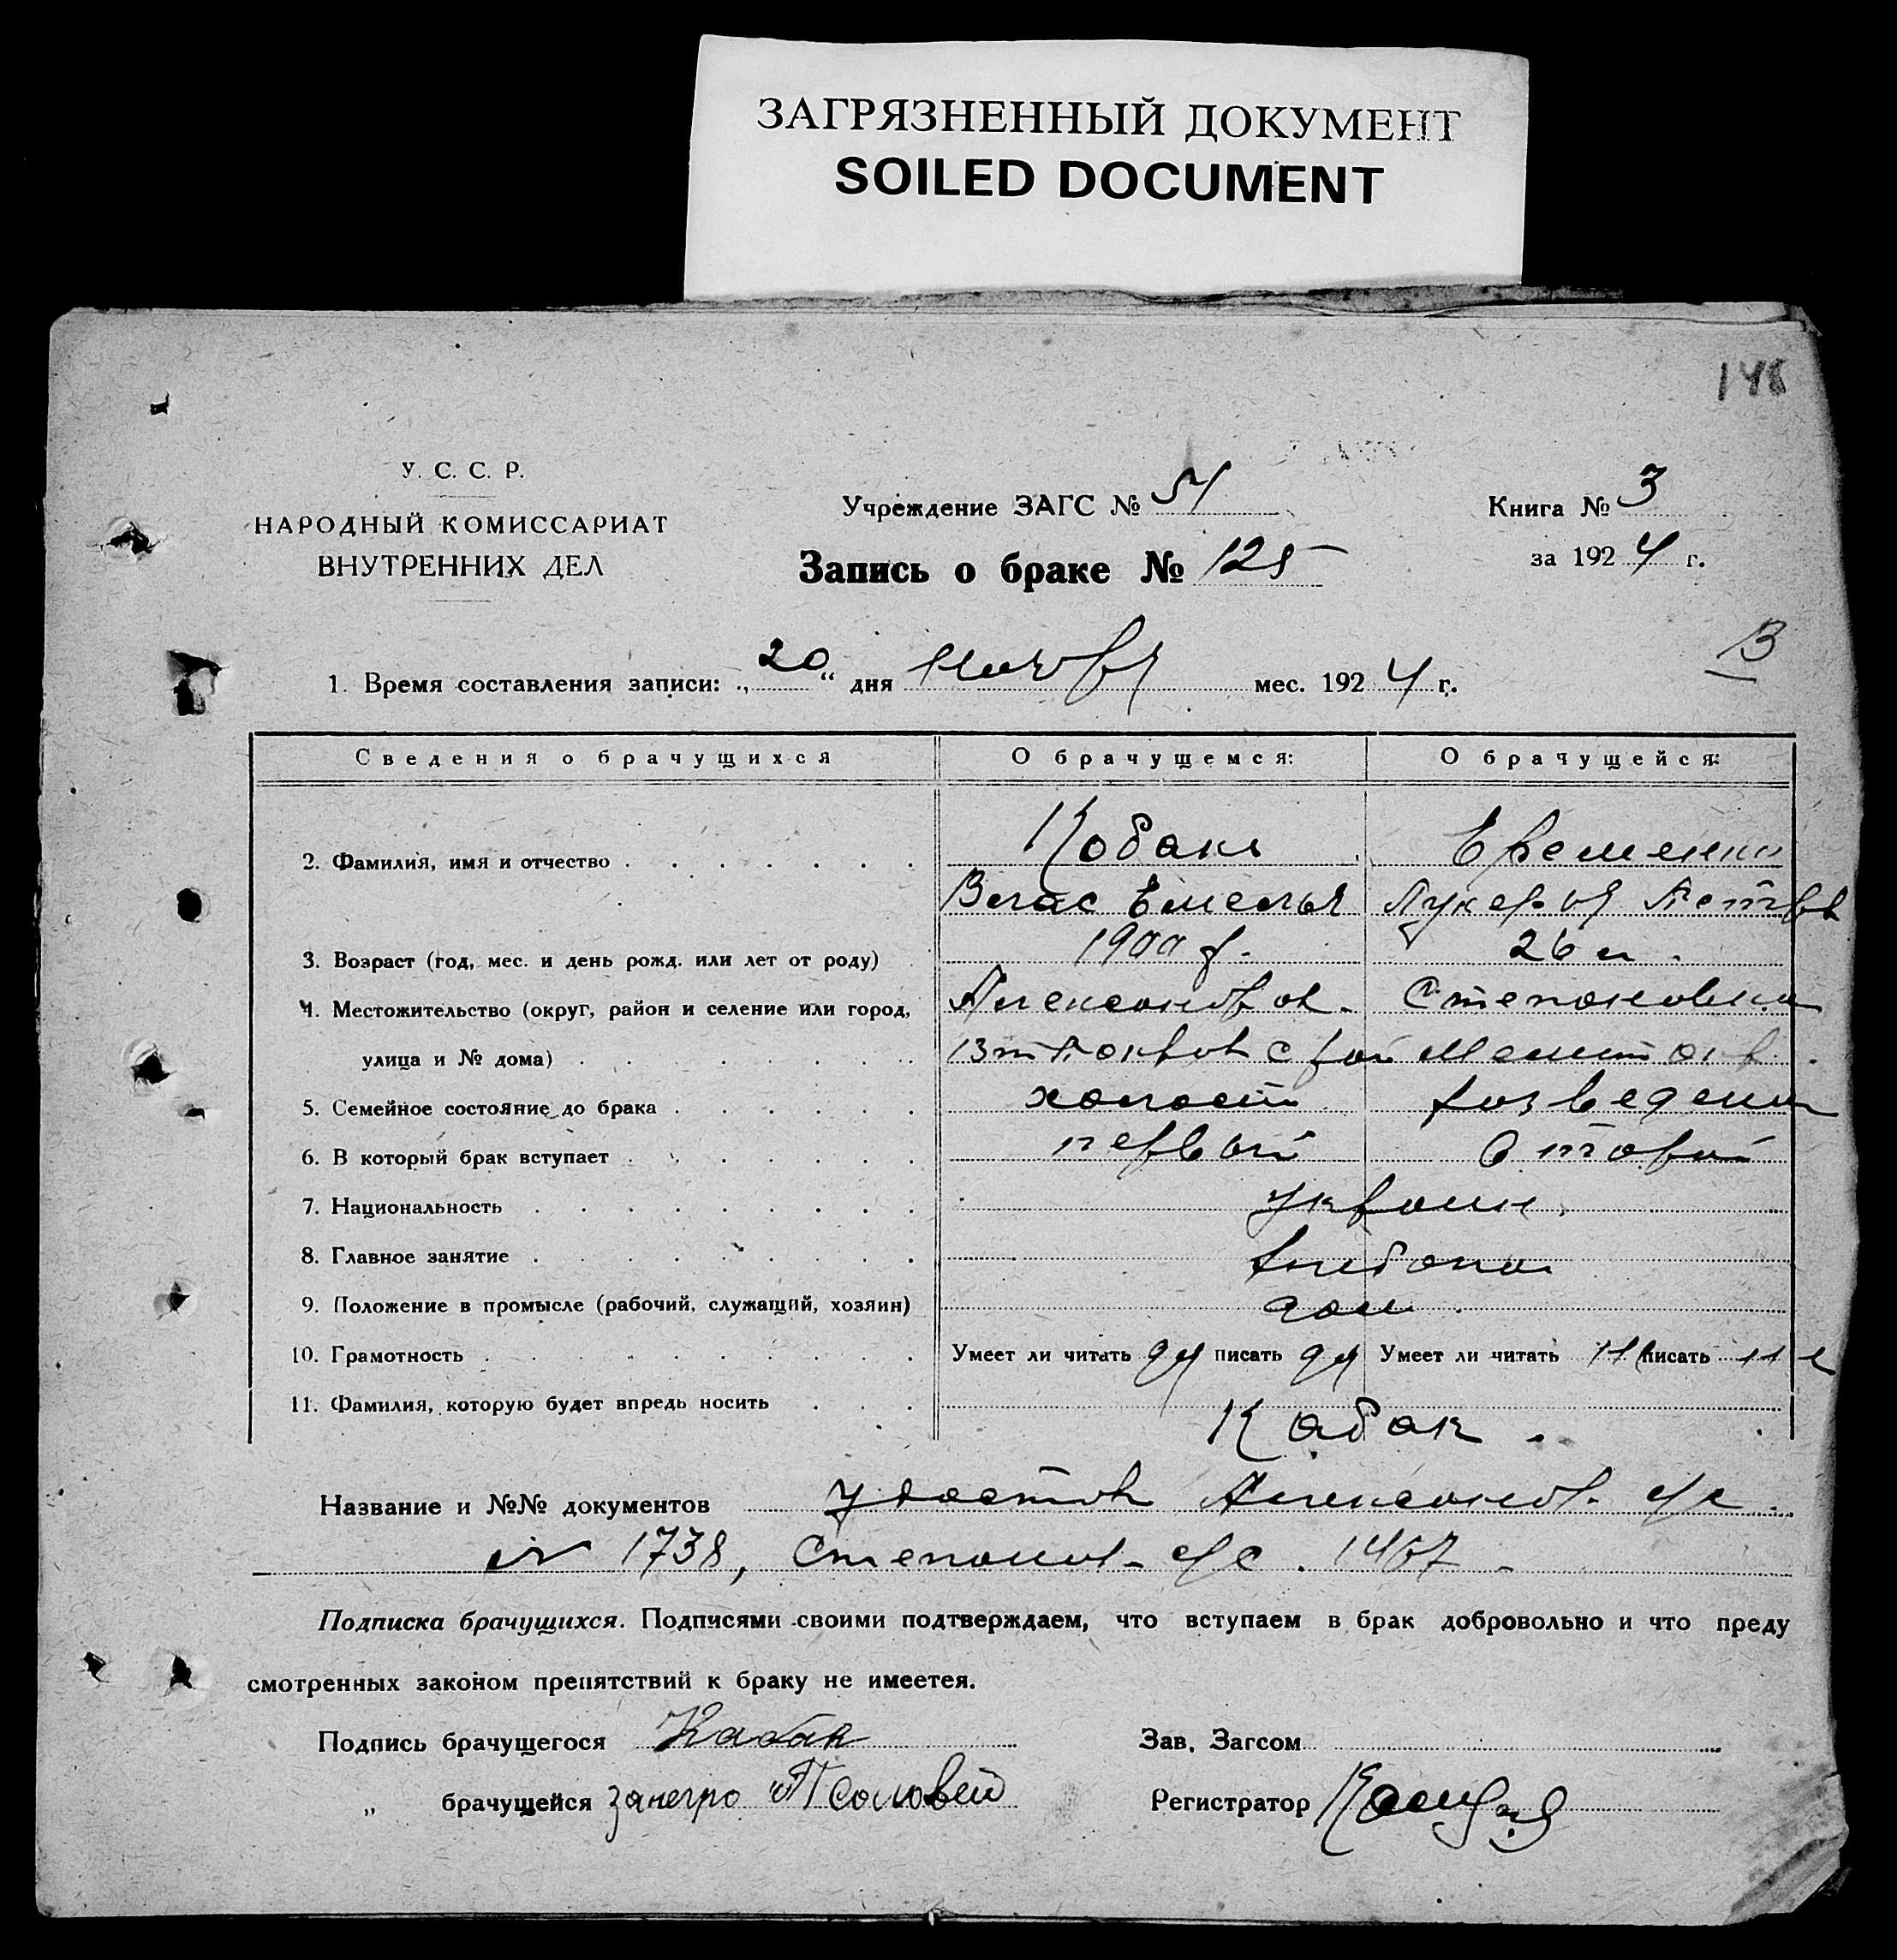 ЗАГРЯЗНЕННЫЙ ДОКУМЕНТ
SOILED DOCUMENT
148
У. С. С. Р.
НАРОДНЫЙ КОМИССАРИАТ
ВНУТРЕННИХ ДЕЛ
Учреждение ЗАГС № 51
Запись о браке № 125
Книга № 3
за 1924 г.
В
1. Время составления записи: „20“ дня Ноября мес. 1924 г.
Сведения о брачущихся О брачущемся: О брачущейся:
2. Фамилия, имя и отчество Кобакъ Еременко
Влас Емельян Лукерия Петров
3. Возраст (год, мес. и день рожд. или лет от роду) 1900 г. 26 л.
4. Местожительство (округ, район и селение или город, Александров. Степановка
улица и № дома) Покров с
5. Семейное состояние до брака холост разведена
6. В который брак вступает первый второй
7. Национальность украин.
8. Главное занятие хлебопаш
9. Положение в промысле (рабочий, служащий, хозяин) дом.
10. Грамотность Умеет ли читать да писать да Умеет ли читать не писать не
11. Фамилия, которую будет впредь носить Кабак.
Название и №№ документов удостов Александ. с/с.
№ 1738, Степанов. с/с. 1467
Подписка брачущихся. Подписями своими подтверждаем, что вступаем в брак добровольно и что преду
смотренных законом препятствий к браку не имеетея.
Подпись брачущегося Кабак Зав. Загсом
„ брачущейся занегро Соловей Регистратор